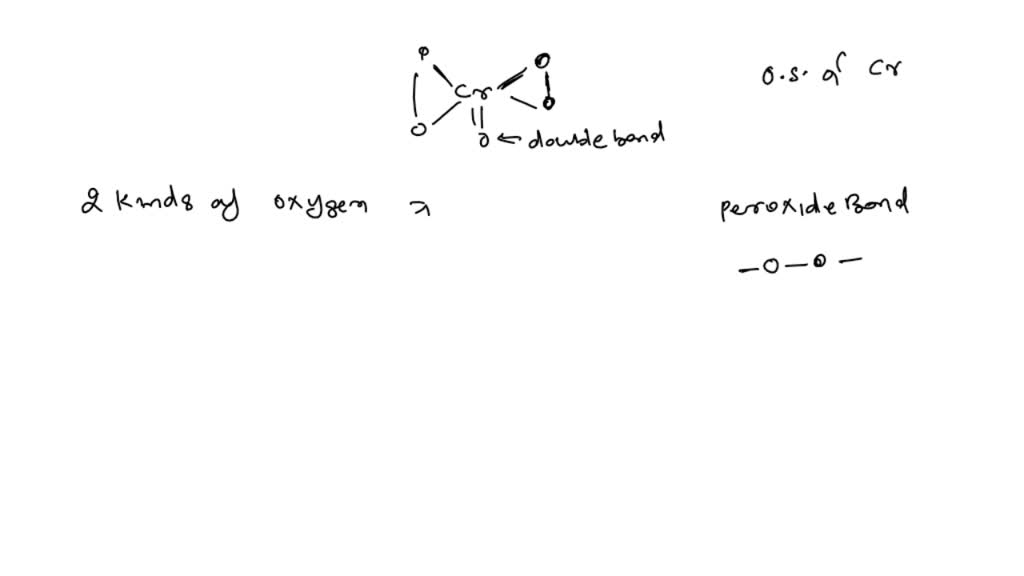 O O
Cr
O O
O ← double bond
O.S. of Cr
2 kinds of oxygen ⇒
peroxide Bond
—O—O—